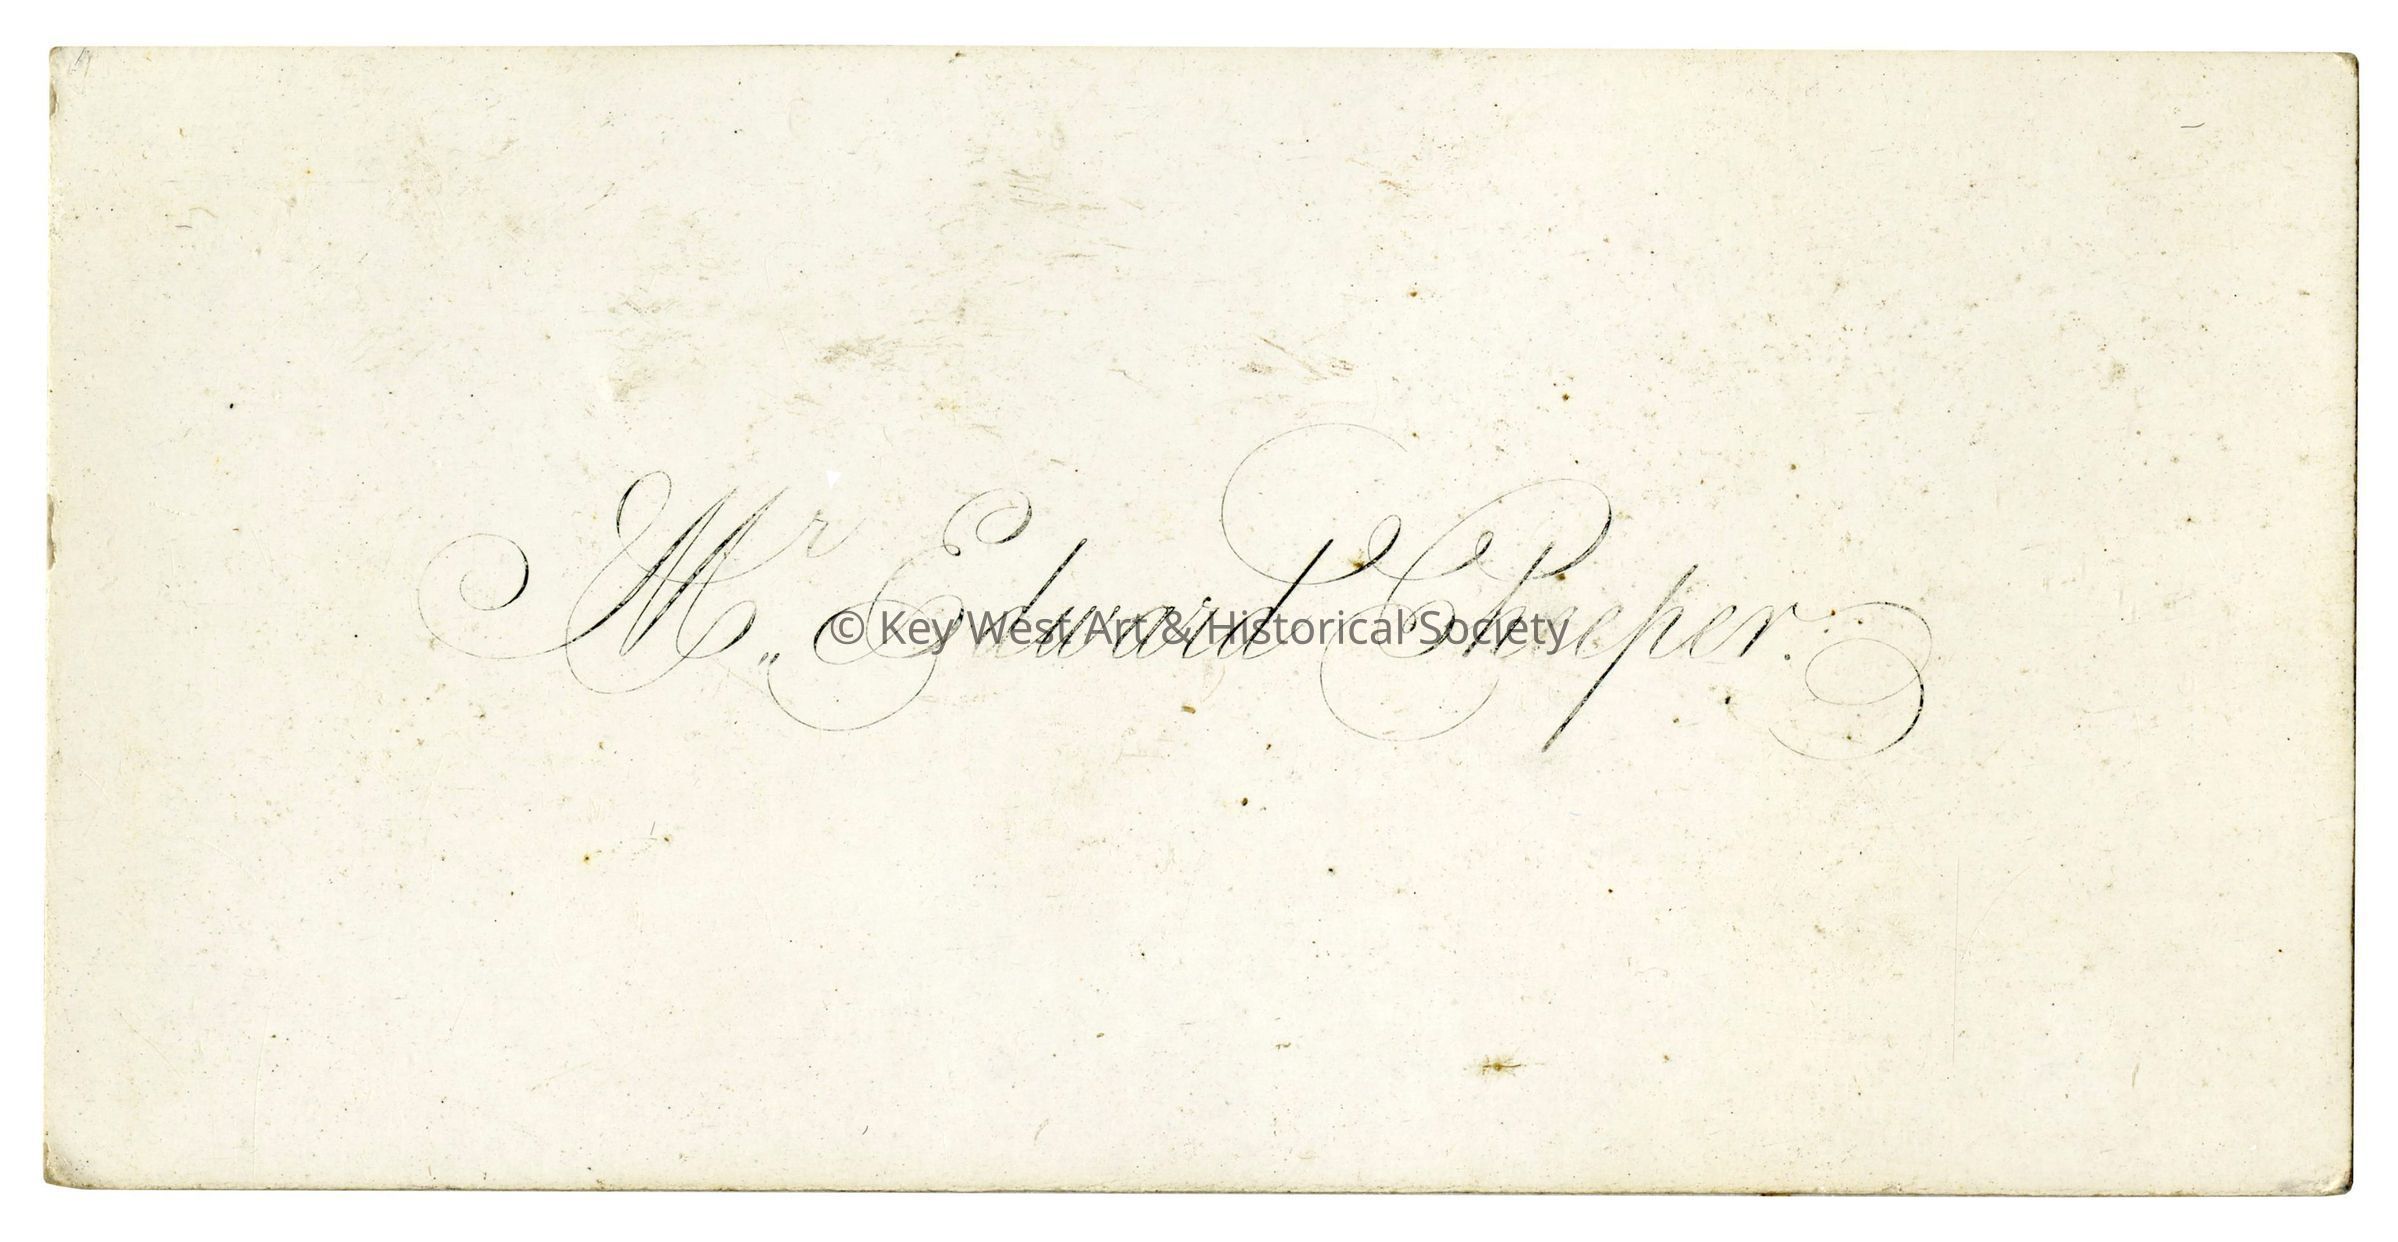 Mr Edward
© Key West Art & Historical Society